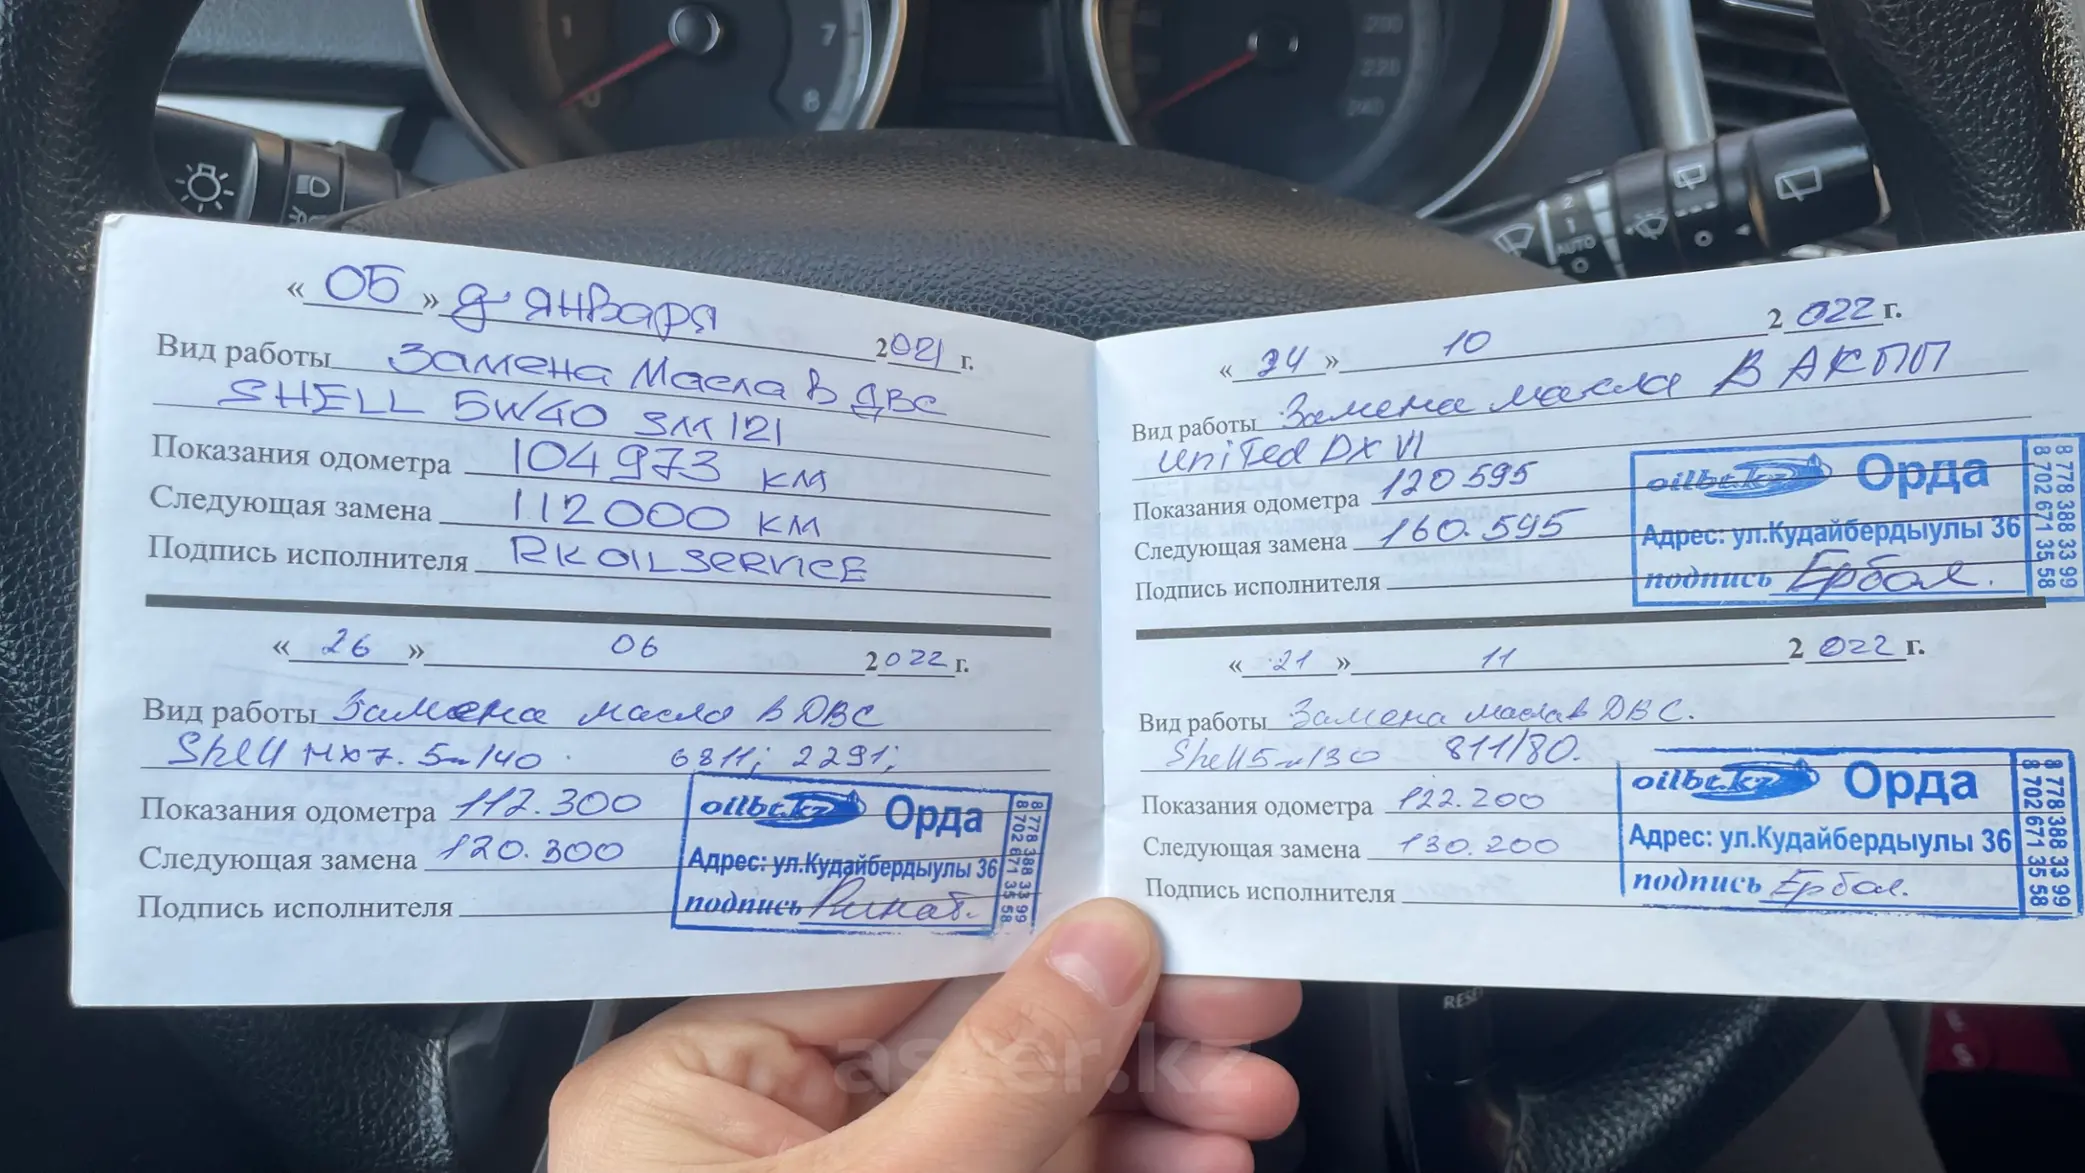 « 05 » января 2021 г.
Вид работы Замена масла в ДВС
SHELL 5W40 SM 121
Показания одометра 104973 км
Следующая замена 112000 км
Подпись исполнителя RK OILSERVICE
« 26 » 06 2022 г.
Вид работы Замена масла в ДВС
Shell HX7. 5w140 6811; 2291;
Показания одометра 112.300
Следующая замена 120.300
Подпись исполнителя
oilbt.kz Орда
Адрес: ул.Кудайбердыулы 36
подпись Ринат.
8 778 388 33 99
8 702 671 35 58
« 24 » 10 2022 г.
Вид работы Замена масла в АКПП
United DX VI
Показания одометра 120595
Следующая замена 160.595
Подпись исполнителя
oilbt.kz Орда
Адрес: ул.Кудайбердыулы 36
подпись Ербол.
8 778 388 33 99
8 702 671 35 58
« 21 » 11 2022 г.
Вид работы Замена масла в ДВС.
Shell 5w130 811/80.
Показания одометра 122.200
Следующая замена 130.200
Подпись исполнителя
oilbt.kz Орда
Адрес: ул.Кудайбердыулы 36
подпись Ербол.
8 778 388 33 99
8 702 671 35 58
1 0 7 8
200
220
240
2
1
AUTO
RESET
aster.kz